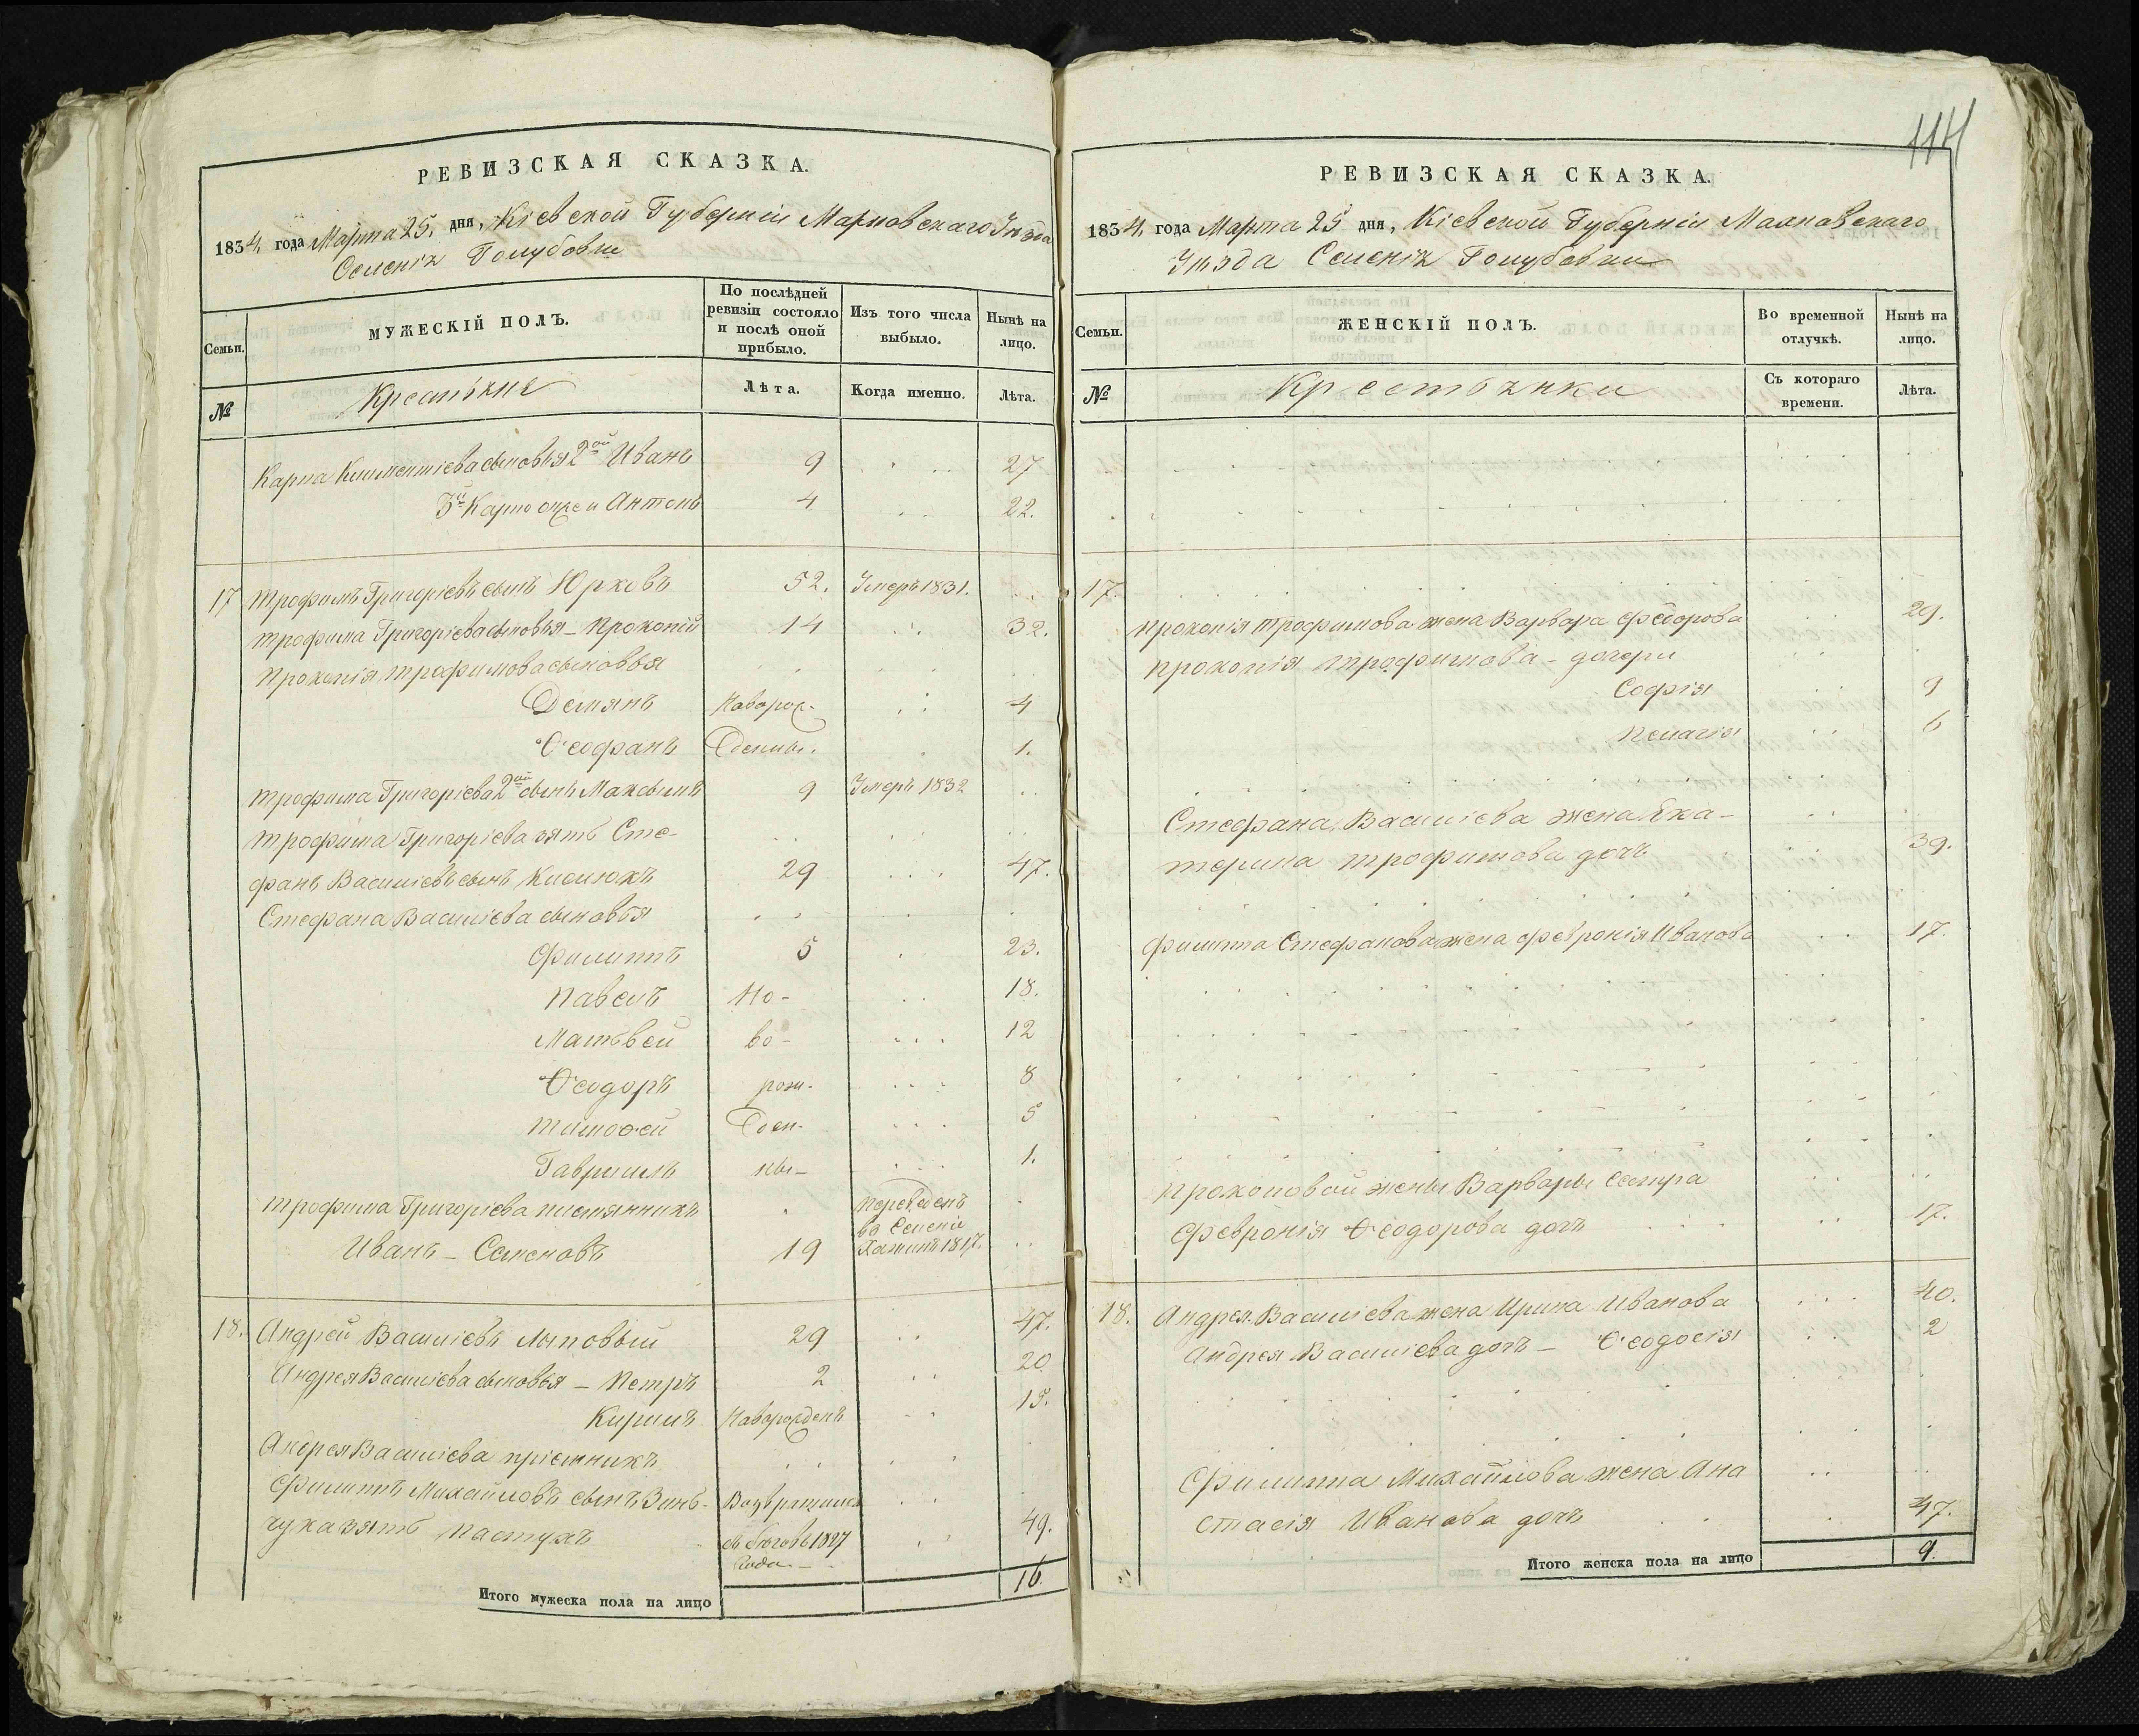 РЕВИЗСКАЯ СКАЗКА.
1834. года Марта 25. дня, Кіевской Губерніи Махновскаго Уѣзда
Селенія Голубовки
Семьи.
МУЖЕСКІЙ ПОЛЪ.
По послѣдней ревизіи состояло и послѣ оной прибыло.
Изъ того числа выбыло.
Нынѣ на лицо.
№
Крестьяне
Лѣта.
Когда именно.
Лѣта.
Карпа Климентіева сыновья 2ой Иванъ 9 27
3й Карпо Антонъ 4 22.
17 Трофимъ Григоріевъ сынъ Юрковъ 52. Умеръ 1831.
Трофима Григоріева сыновья – Прокопій 14 32.
Прокопія Трофимова сыновья
Демянъ Новорож- 4
Ѳеофанъ денны. 1.
Трофима Григоріева 2ой сынъ Максымъ 9 Умеръ 1832
Трофима Григоріева зять Сте-
фанъ Василіевъ сынъ Кислюкъ 29 47.
Стефана Василіева сыновья
Филиппъ 5 23.
Павелъ Но- 18.
Матвей во- 12
Ѳеодоръ рож- 8
Тимоѳей ден- 5
Гавриилъ ны- 1.
Трофима Григоріева племянникъ Переведенъ
въ Селеніе
Иванъ – Семеновъ 19 1817.
18. Андрей Василіевъ Лыповый 29 47.
Андрея Василіева сыновья – Петръ 2 20
Кирилъ Новорожденъ 15.
Андрея Василіева пріемникъ
Филиппъ Михайловъ сынъ Зинь- Возвратился
чука зять Пастухъ съ бѣговъ 1827 49.
Года –
Итого мужеска пола на лицо 16.
114
РЕВИЗСКАЯ СКАЗКА.
1834. года Марта 25 дня, Кіевской Губерніи Махновскаго
Уѣзда Селенія Голубовки
Семьи.
ЖЕНСКІЙ ПОЛЪ.
Во временной отлучкѣ.
Нынѣ на лицо.
№
Крестьянки
Съ котораго времени.
Лѣта.
17.
Прокопія Трофимова жена Варвара Федорова 29.
Прокопія Трофимова – дочери
Софія 9
Пелагія 6
Стефана Василіева жена Ека-
терина Трофимова дочь 39.
Филиппа Стефанова жена Февронія Иванова 17.
Прокоповой жены Варвары Сестра
Февронія Ѳеодорова дочь 17.
18. Андрея Василіева жена Ирина Иванова 40.
Андрея Василіева дочь – Ѳеодосія 2
Филиппа Михайлова жена Ана
стасія Иванова дочь 47.
Итого женска пола на лицо 9.